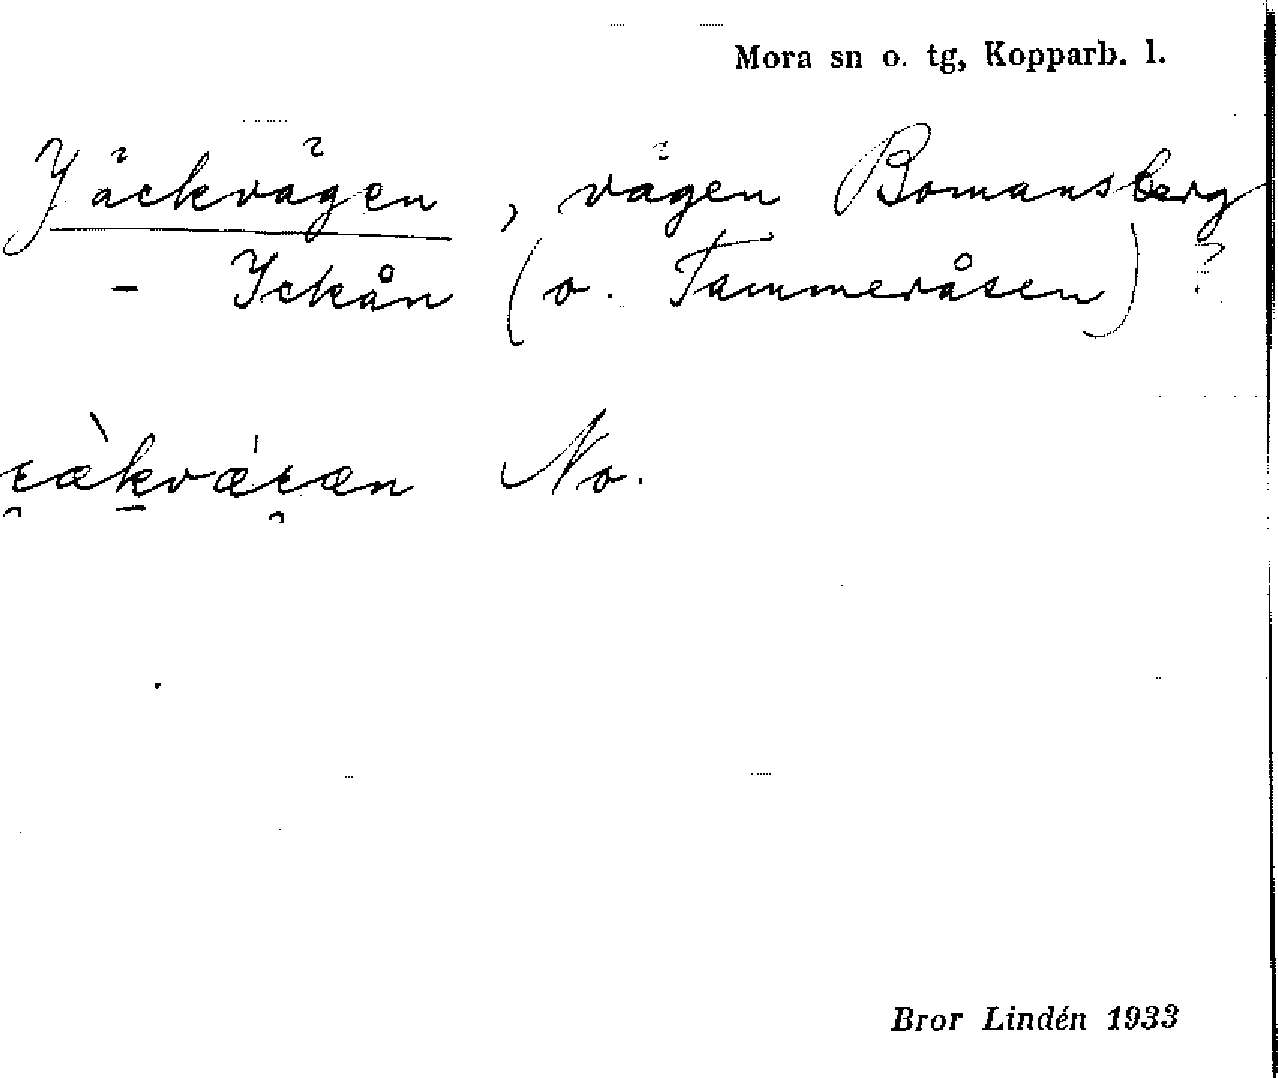 Mora sn o. tg, Kopparb. l.
Jäckvägen, vägen Bomansberg
- Ickån (o. Tammeråsen) ?
No.
Bror Lindén 1933